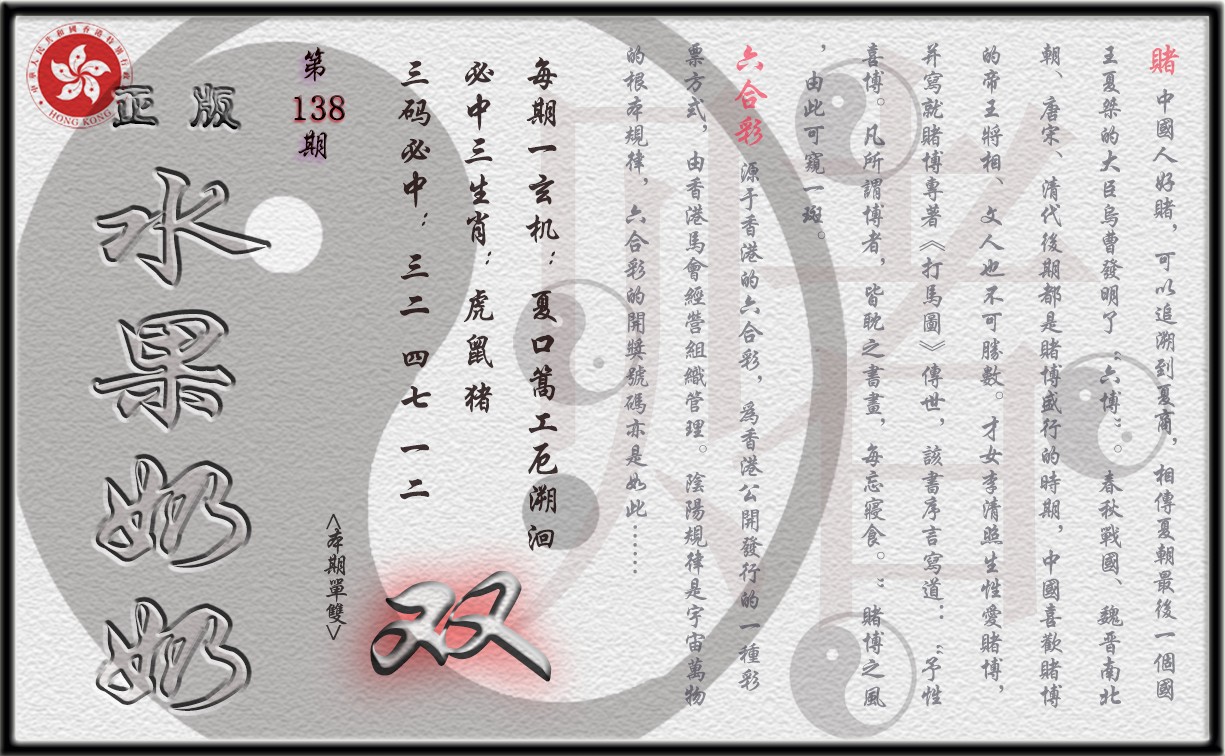 賭 中國人好賭，可以追溯到夏商，相傳夏朝最後一個國
王夏桀的大臣烏曹發明了“六博”。春秋戰國、魏晋南北
朝、唐宋、清代後期都是賭博盛行的時期，中國喜歡賭博
的帝王將相、文人也不可勝數。才女李清照生性愛賭博，
并寫就賭博專著《打馬圖》傳世，該書序言寫道：“予性
喜博。凡所謂博者，皆耽之晝畫，每忘寢食。”賭博之風
，由此可窺一斑。
六合彩 源于香港的六合彩，爲香港公開發行的一種彩
票方式，由香港馬會經營組織管理。陰陽規律是宇宙萬物
的根本規律，六合彩的開獎號碼亦是如此……
每期一玄机：夏口篙工厄溯洄
必中三生肖：虎鼠猪
三码必中：三二 四七 一二
双
<本期單雙>
第
138
期
正版
水果奶奶
中華人民共和國香港特別行政區
HONG KONG
賭